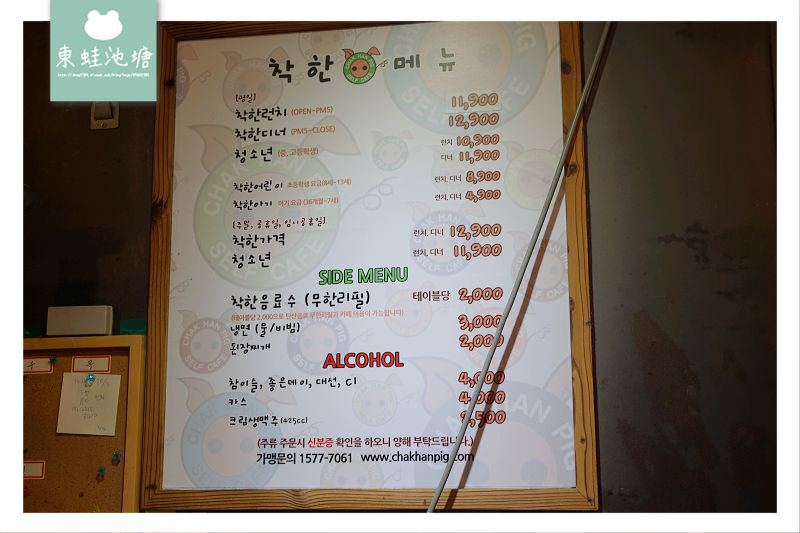 東蛙池塘
착한 메뉴
[평일]
착한런치 (OPEN~PM5) 11,900
착한디너 (PM5~CLOSE) 12,900
청소년 (중, 고등학생) 런치 10,900
디너 11,900
착한어린이 초등학생 요금(8세~13세) 런치, 디너 8,900
착한아기 아기 요금 (36개월~7세) 런치, 디너 4,900
[주말, 공휴일, 임시공휴일]
착한가격 런치, 디너 12,900
청소년 런치, 디너 11,900
SIDE MENU
착한음료수 (무한리필) 테이블당 2,000
(테이블당 2,000으로 탄산음료 무한리필과 카페 이용이 가능합니다)
냉면 (물/비빔) 3,000
된장찌개 2,000
ALCOHOL
참이슬, 좋은데이, 대선, C1 4,000
카스 4,000
크림생맥주(425cc) 2,500
(주류 주문시 신분증 확인을 하오니 양해 부탁드립니다.)
가맹문의 1577-7061 www.chakhanpig.com